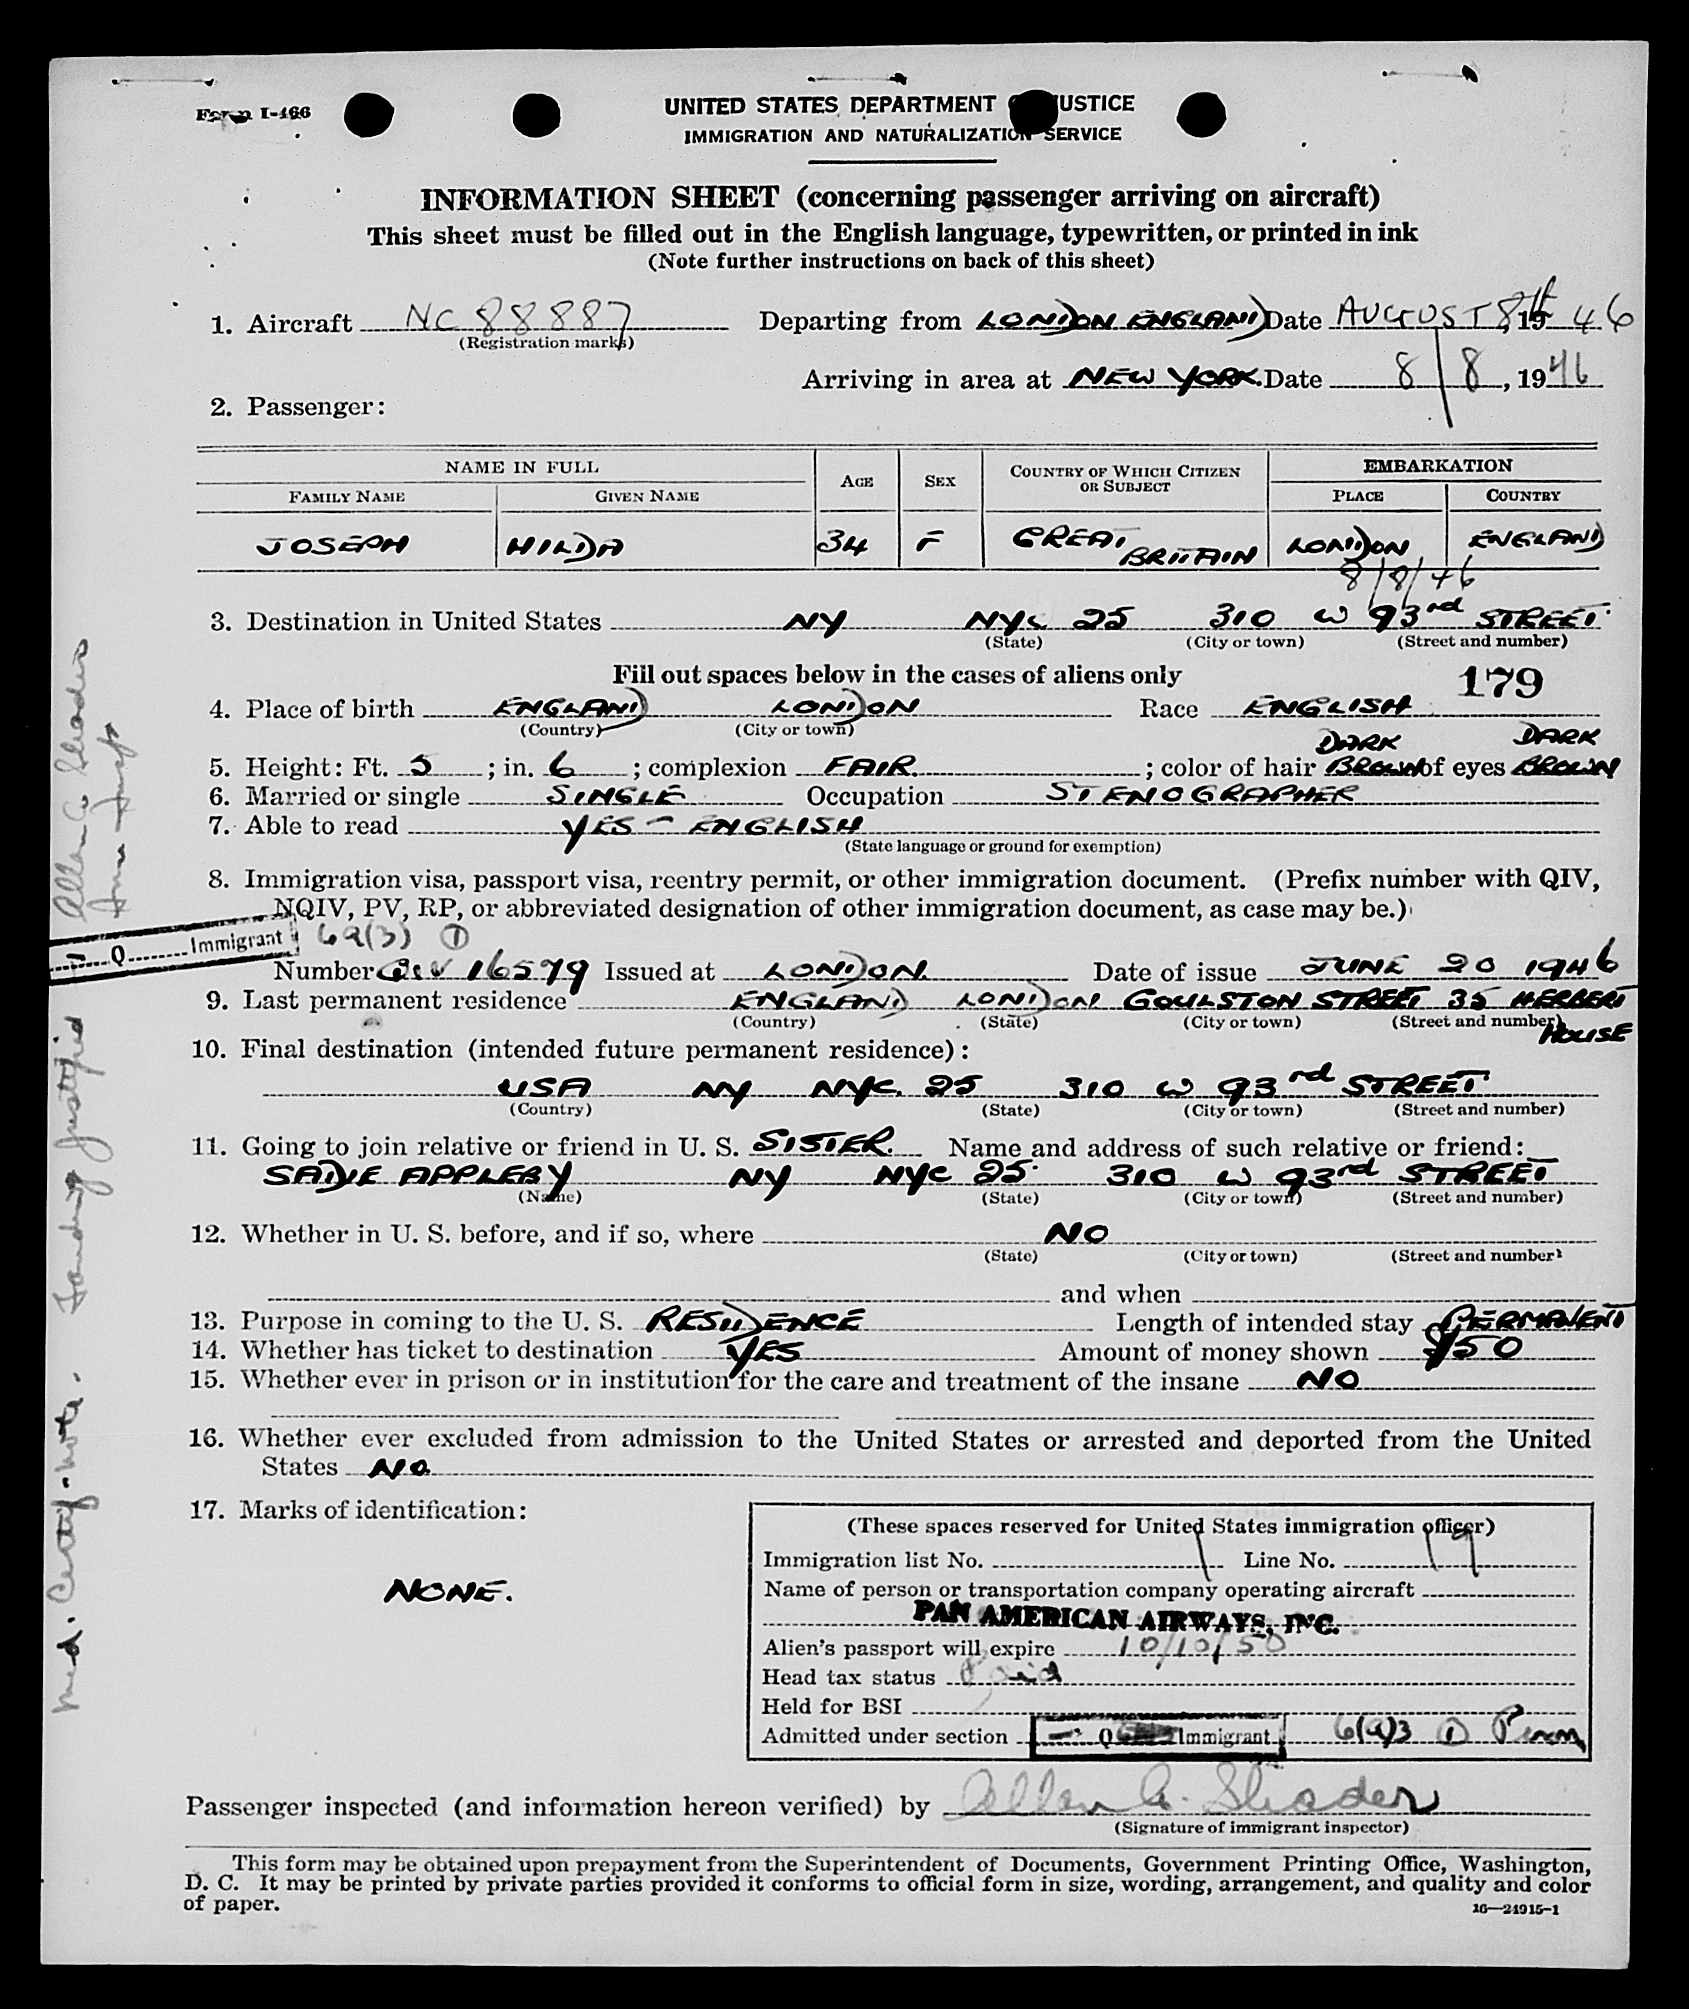 Form I-466
UNITED STATES DEPARTMENT OF JUSTICE
IMMIGRATION AND NATURALIZATION SERVICE
INFORMATION SHEET (concerning passenger arriving on aircraft)
This sheet must be filled out in the English language, typewritten, or printed in ink
(Note further instructions on back of this sheet)
1. Aircraft NC 88887 Departing from LONDON ENGLAND Date AUGUST 8th, 1946
(Registration marks)
Arriving in area at NEW YORK. Date 8/8, 1946
2. Passenger:
NAME IN FULL AGE SEX COUNTRY OF WHICH CITIZEN OR SUBJECT EMBARKATION
FAMILY NAME GIVEN NAME PLACE COUNTRY
JOSEPH HILDA 34 F GREAT BRITAIN LONDON ENGLAND
8/8/46
3. Destination in United States NY NYC 25 310 W 93rd STREET
(State) (City or town) (Street and number)
Fill out spaces below in the cases of aliens only 179
4. Place of birth ENGLAND LONDON Race ENGLISH
(Country) (City or town)
DARK DARK
5. Height: Ft. 5; in. 6; complexion FAIR; color of hair BROWN of eyes BROWN
6. Married or single SINGLE Occupation STENOGRAPHER
7. Able to read YES - ENGLISH
(State language or ground for exemption)
8. Immigration visa, passport visa, reentry permit, or other immigration document. (Prefix number with QIV,
NQIV, PV, RP, or abbreviated designation of other immigration document, as case may be.)
Q Immigrant 6a(3) 1
Number QIV 16579 Issued at LONDON. Date of issue JUNE 20 1946
9. Last permanent residence ENGLAND LONDON GOULSTON STREET 35 HERBERT
(Country) (State) (City or town) (Street and number) HOUSE
10. Final destination (intended future permanent residence):
USA NY NYC. 25 310 W 93rd STREET
(Country) (State) (City or town) (Street and number)
11. Going to join relative or friend in U. S. SISTER. Name and address of such relative or friend:
SADIE APPLEBY NY NYC 25 310 W 93rd STREET
(Name) (State) (City or town) (Street and number)
12. Whether in U. S. before, and if so, where NO
(State) (City or town) (Street and number)
and when
13. Purpose in coming to the U. S. RESIDENCE Length of intended stay PERMANENT
14. Whether has ticket to destination YES Amount of money shown $50
15. Whether ever in prison or in institution for the care and treatment of the insane NO
16. Whether ever excluded from admission to the United States or arrested and deported from the United
States NO
17. Marks of identification:
NONE.
(These spaces reserved for United States immigration officer)
Immigration list No. 1 Line No. 19
Name of person or transportation company operating aircraft
PAN AMERICAN AIRWAYS, INC.
Alien's passport will expire 10/10/50
Head tax status Paid
Held for BSI
Admitted under section Q Immigrant 6(a)3 1 Perm
Passenger inspected (and information hereon verified) by Allen A. Shader
(Signature of immigrant inspector)
This form may be obtained upon prepayment from the Superintendent of Documents, Government Printing Office, Washington,
D. C. It may be printed by private parties provided it conforms to official form in size, wording, arrangement, and quality and color
of paper.
16—24915-1
Landing Justified